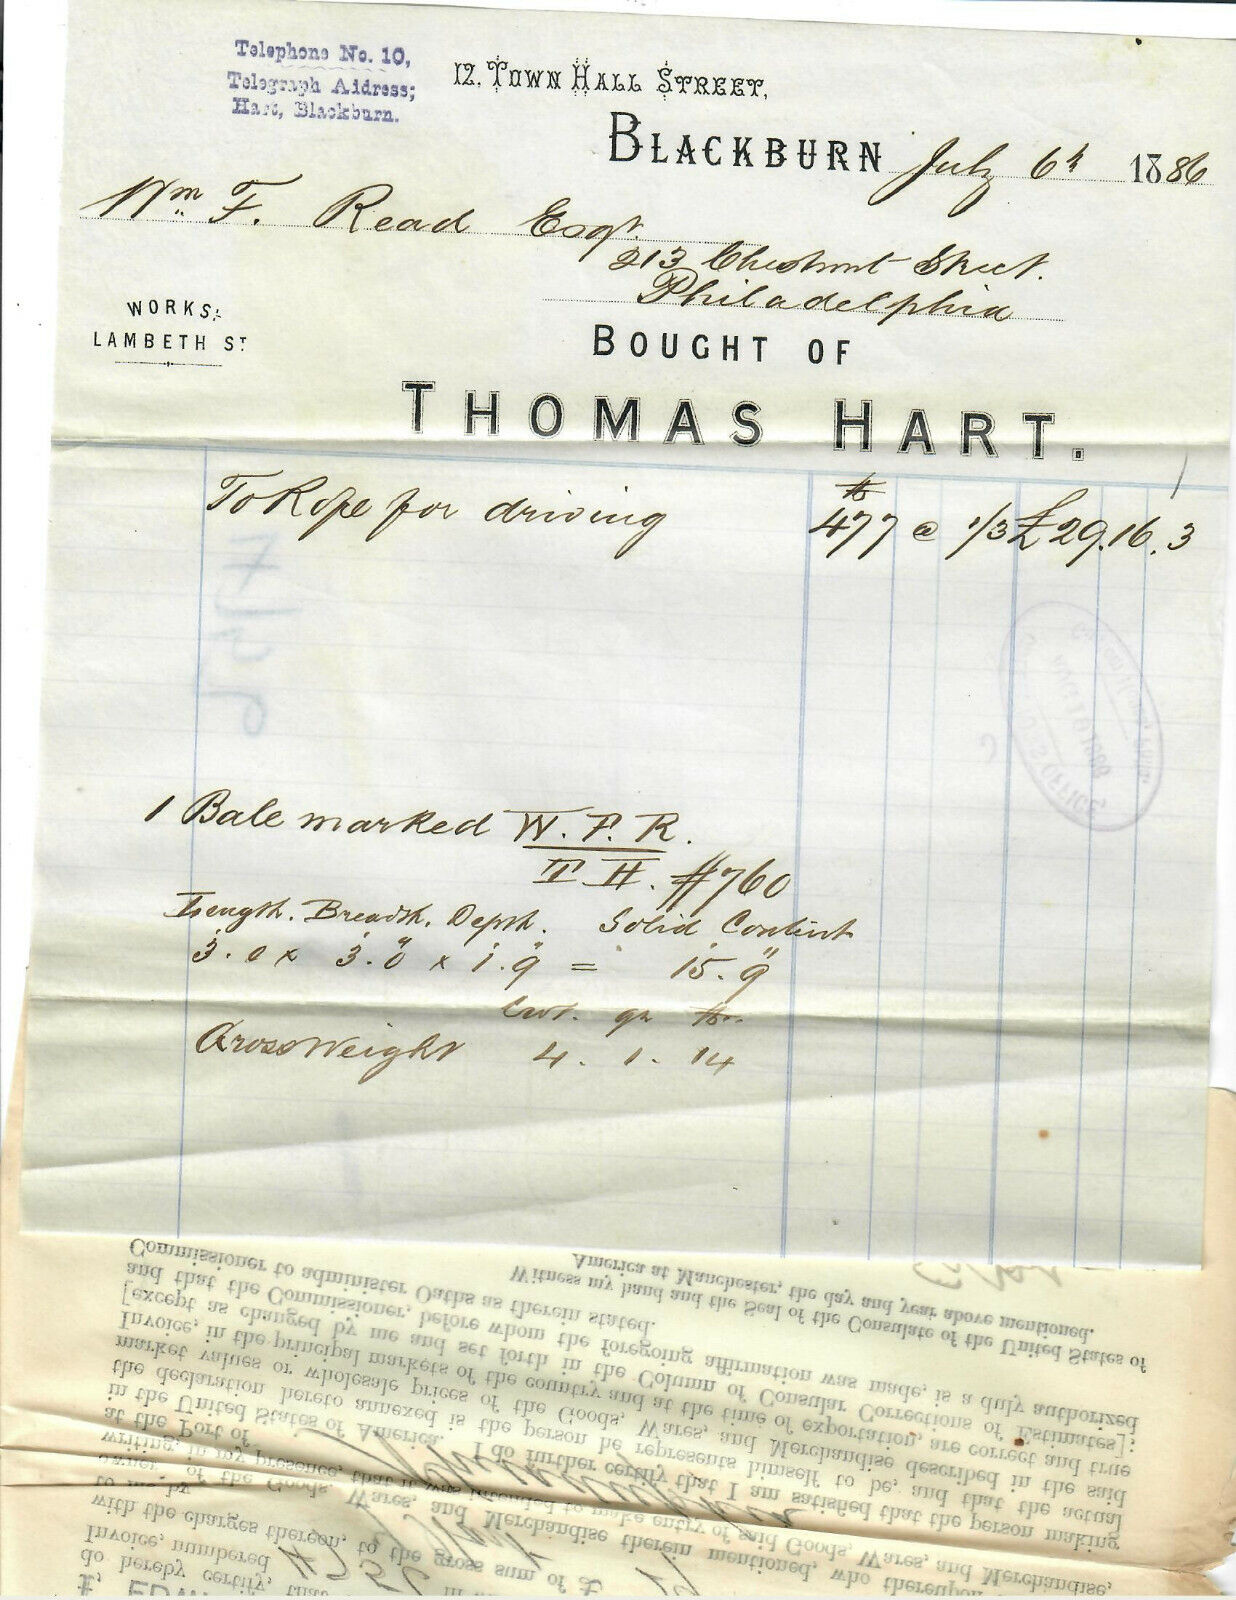 Telephone No. 10,
Telegraph Address;
Hart, Blackburn.
12, Town Hall Street,
Blackburn July 6th 1886
Wm F. Read Esqr.
213 Chestnut Street.
Philadelphia
WORKS:
LAMBETH ST
BOUGHT OF
THOMAS HART.
To Rope for driving 477 lb @ 1/3 £29.16.3
1 Bale marked W. F. R.
T H. #760
Length. Breadth. Depth. Solid Content
3'.0 x 3'.0" x 1'.9" = 15'.9"
Cwt. qr lb.
Gross Weight 4. 1. 14
America at Manchester, the day and year above mentioned.
Witness my hand and the Seal of the Consulate of the United States of
Commissioner to administer Oaths as therein stated.
and that the Commissioner, before whom the foregoing affirmation was made, is a duly authorized
[except as changed by me and set forth in the Column of Consular Corrections of Estimates];
Invoice, in the principal markets of the country and at the time of exportation, are correct and true
market values or wholesale prices of the Goods, Wares, and Merchandise described in the said
the declaration hereto annexed is the person he represents himself to be, and that the actual
in the United States of America. I do further certify that I am satisfied that the person making
at the Port of
writing, in my presence, that it was intended to make entry of said Goods, Wares, and Merchandise
owner of the Goods, Wares, and Merchandise therein mentioned, who thereupon
to me by
with the charges thereon, to the gross sum of £
Invoice, numbered
do hereby certify, that